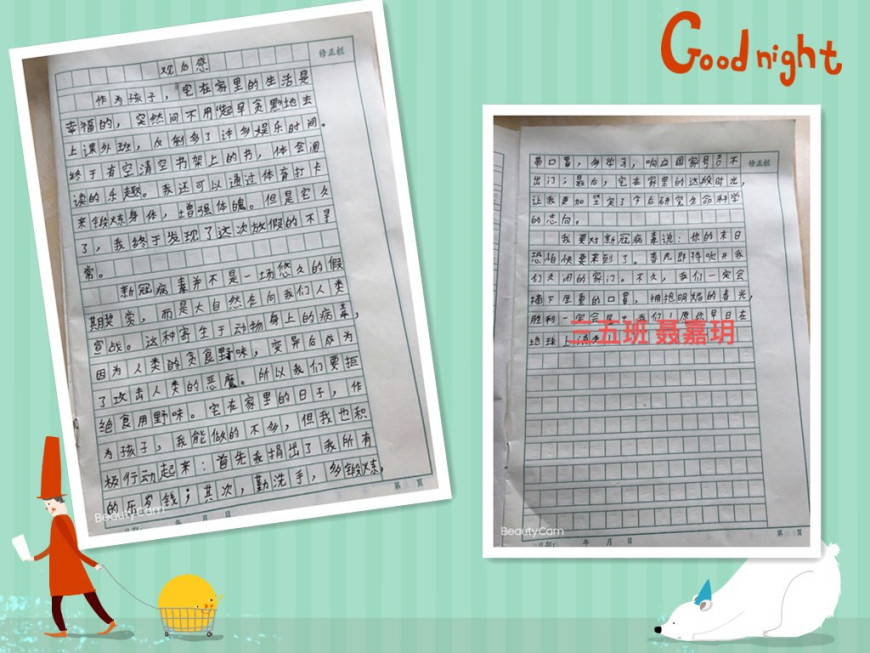 Good night
修正栏
观后感
作为孩子，宅在家里的生活是
幸福的，突然间不用起早贪黑地去
上课外班，反倒多了许多娱乐时间。
终于有空清空书架上的书，体会阅
读的乐趣。我还可以通过体育打卡
来锻炼身体，增强体魄。但是宅久
了，我终于发现了这次放假的不寻
常。
新冠病毒并不是一场悠久的假
期奖赏，而是大自然在向我们人类
宣战。这种寄生于动物身上的病毒，
因为人类的贪食野味，变异后成为
了攻击人类的恶魔。所以我们要拒
绝食用野味。宅在家里的日子，作
为孩子，我能做的不多，但我也积
极行动起来：首先我捐出了我所有
的压岁钱；其次，勤洗手，多锻炼，
BeautyCam
年 月 日
第 页
修正栏
带口罩，多学习，响应国家号召不
出门；最后，宅在家里的这段时光，
让我更加坚定了今后研究生命科学
的志向。
我要对新冠病毒说：你的末日
恐怕快要来到了。春风即将吹开我
们久闭的家门。不久，我们一定会
摘下厚重的口罩，拥抱明媚的春光，
胜利一定会是我们！愿你早日在
地球上消
三五班 聂嘉玥
BeautyCam
年 月 日
第 页